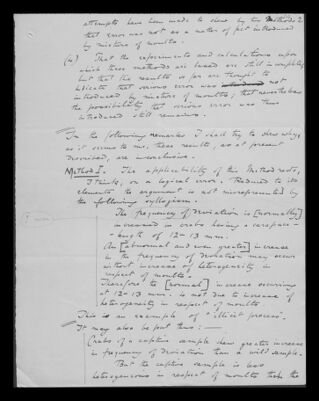 attempts have been made to show by two methods 2
that error was not as a matter of fact introduced
by mixture of moults.
(4) That the experiments and calculations upon
which these methods are based are still incomplete,
but that the results so far are thought to
indicate that serious error was not
introduced by mixture of moults, that nevertheless
the possibility that serious error was thus
introduced still remains.
In the following remarks I shall try to show why,
as it seems to me, these results, as at present
described, are inconclusive.
Method I. The applicability of this Method rests,
I think, on a logical error. Reduced to its
elements the argument is not misrepresented by
the following syllogism.
The frequency of deviation is [normally]
increased in crabs having a carapace-
-length of 12-13 mm.
An [abnormal and even greater] increase
in the frequency of deviation may occur
without increase of heterogeneity in
respect of moults.
Therefore the [normal] increase occurring
at 12-13 mm. is not due to increase of
heterogeneity in respect of moults.
This is an example of "illicit process".
It may also be put thus:—
Crabs of a captive sample show greater increase
in frequency of deviation than a wild sample.
But the captive sample is less
heterogeneous in respect of moults than the